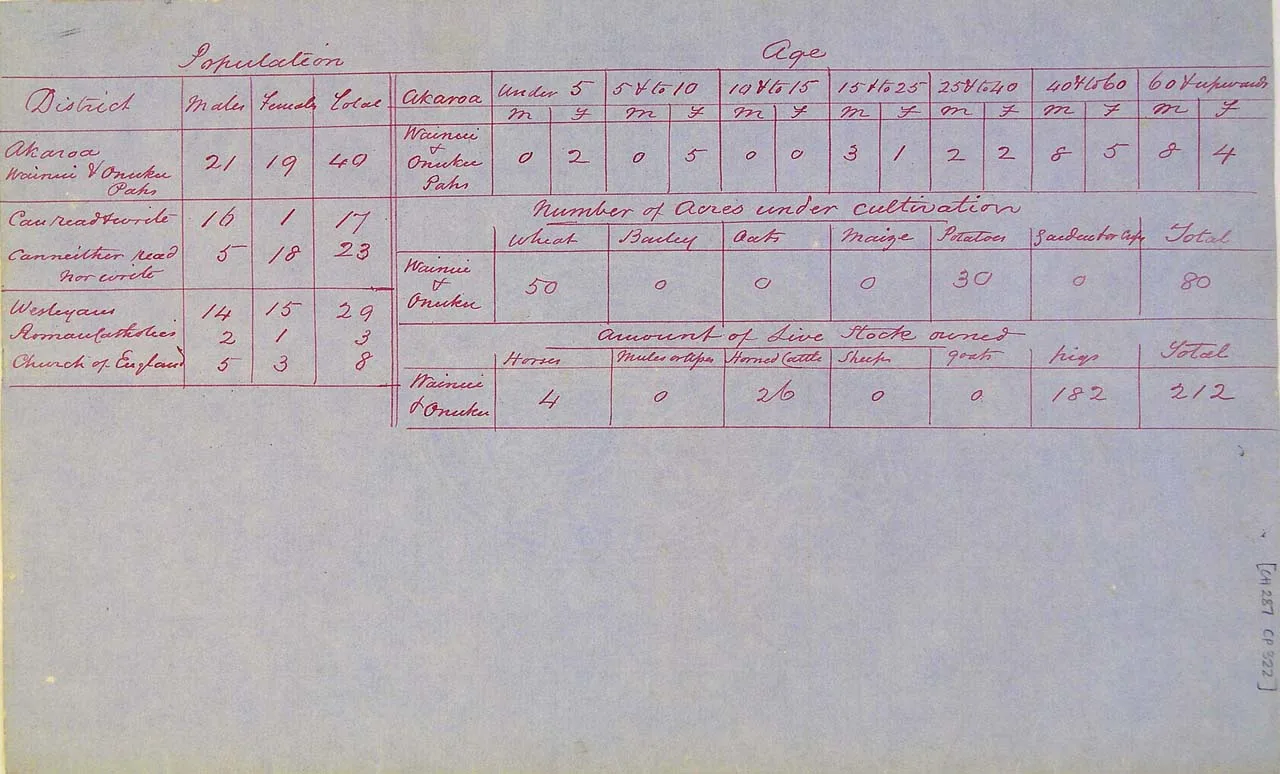 Population
District Males Females Total
Akaroa
Wainui & Onuku
Pahs 21 19 40
Can read & write 16 1 17
Can neither read
nor write 5 18 23
Wesleyans 14 15 29
Roman Catholics 2 1 3
Church of England 5 3 8
Age
Akaroa under 5 5 & to 10 10 & to 15 15 & to 25 25 & to 40 40 & to 60 60 & upwards
M F M F M F M F M F M F M F
Wainui
&
Onuku
Pahs 0 2 0 5 0 0 3 1 2 2 8 5 8 4
Number of Acres under cultivation
Wheat Barley Oats Maize Potatoes Garden or Total
Wainui
&
Onuku 50 0 0 0 30 0 80
Amount of Live Stock owned
Horses Mules or Horned Cattle Sheep goats pigs Total
Wainui
& Onuku 4 0 26 0 0 182 212
[CH 287 CP 322]